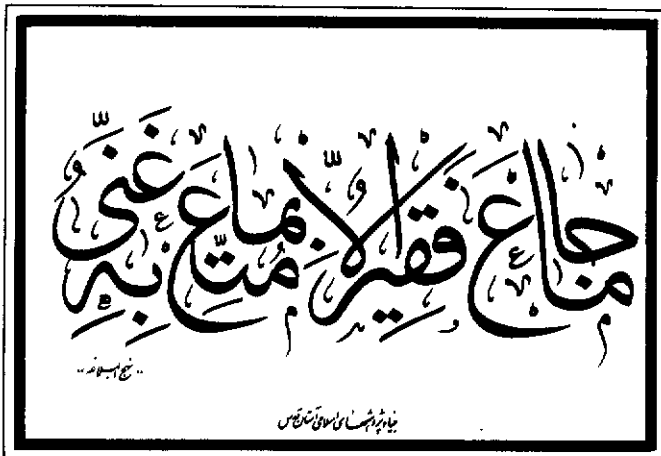 ما جاع فقير الا بما متّع به غنىّ
.. نهج البلاغه ..
بنیاد پژوهشهای اسلامی آستان قدس